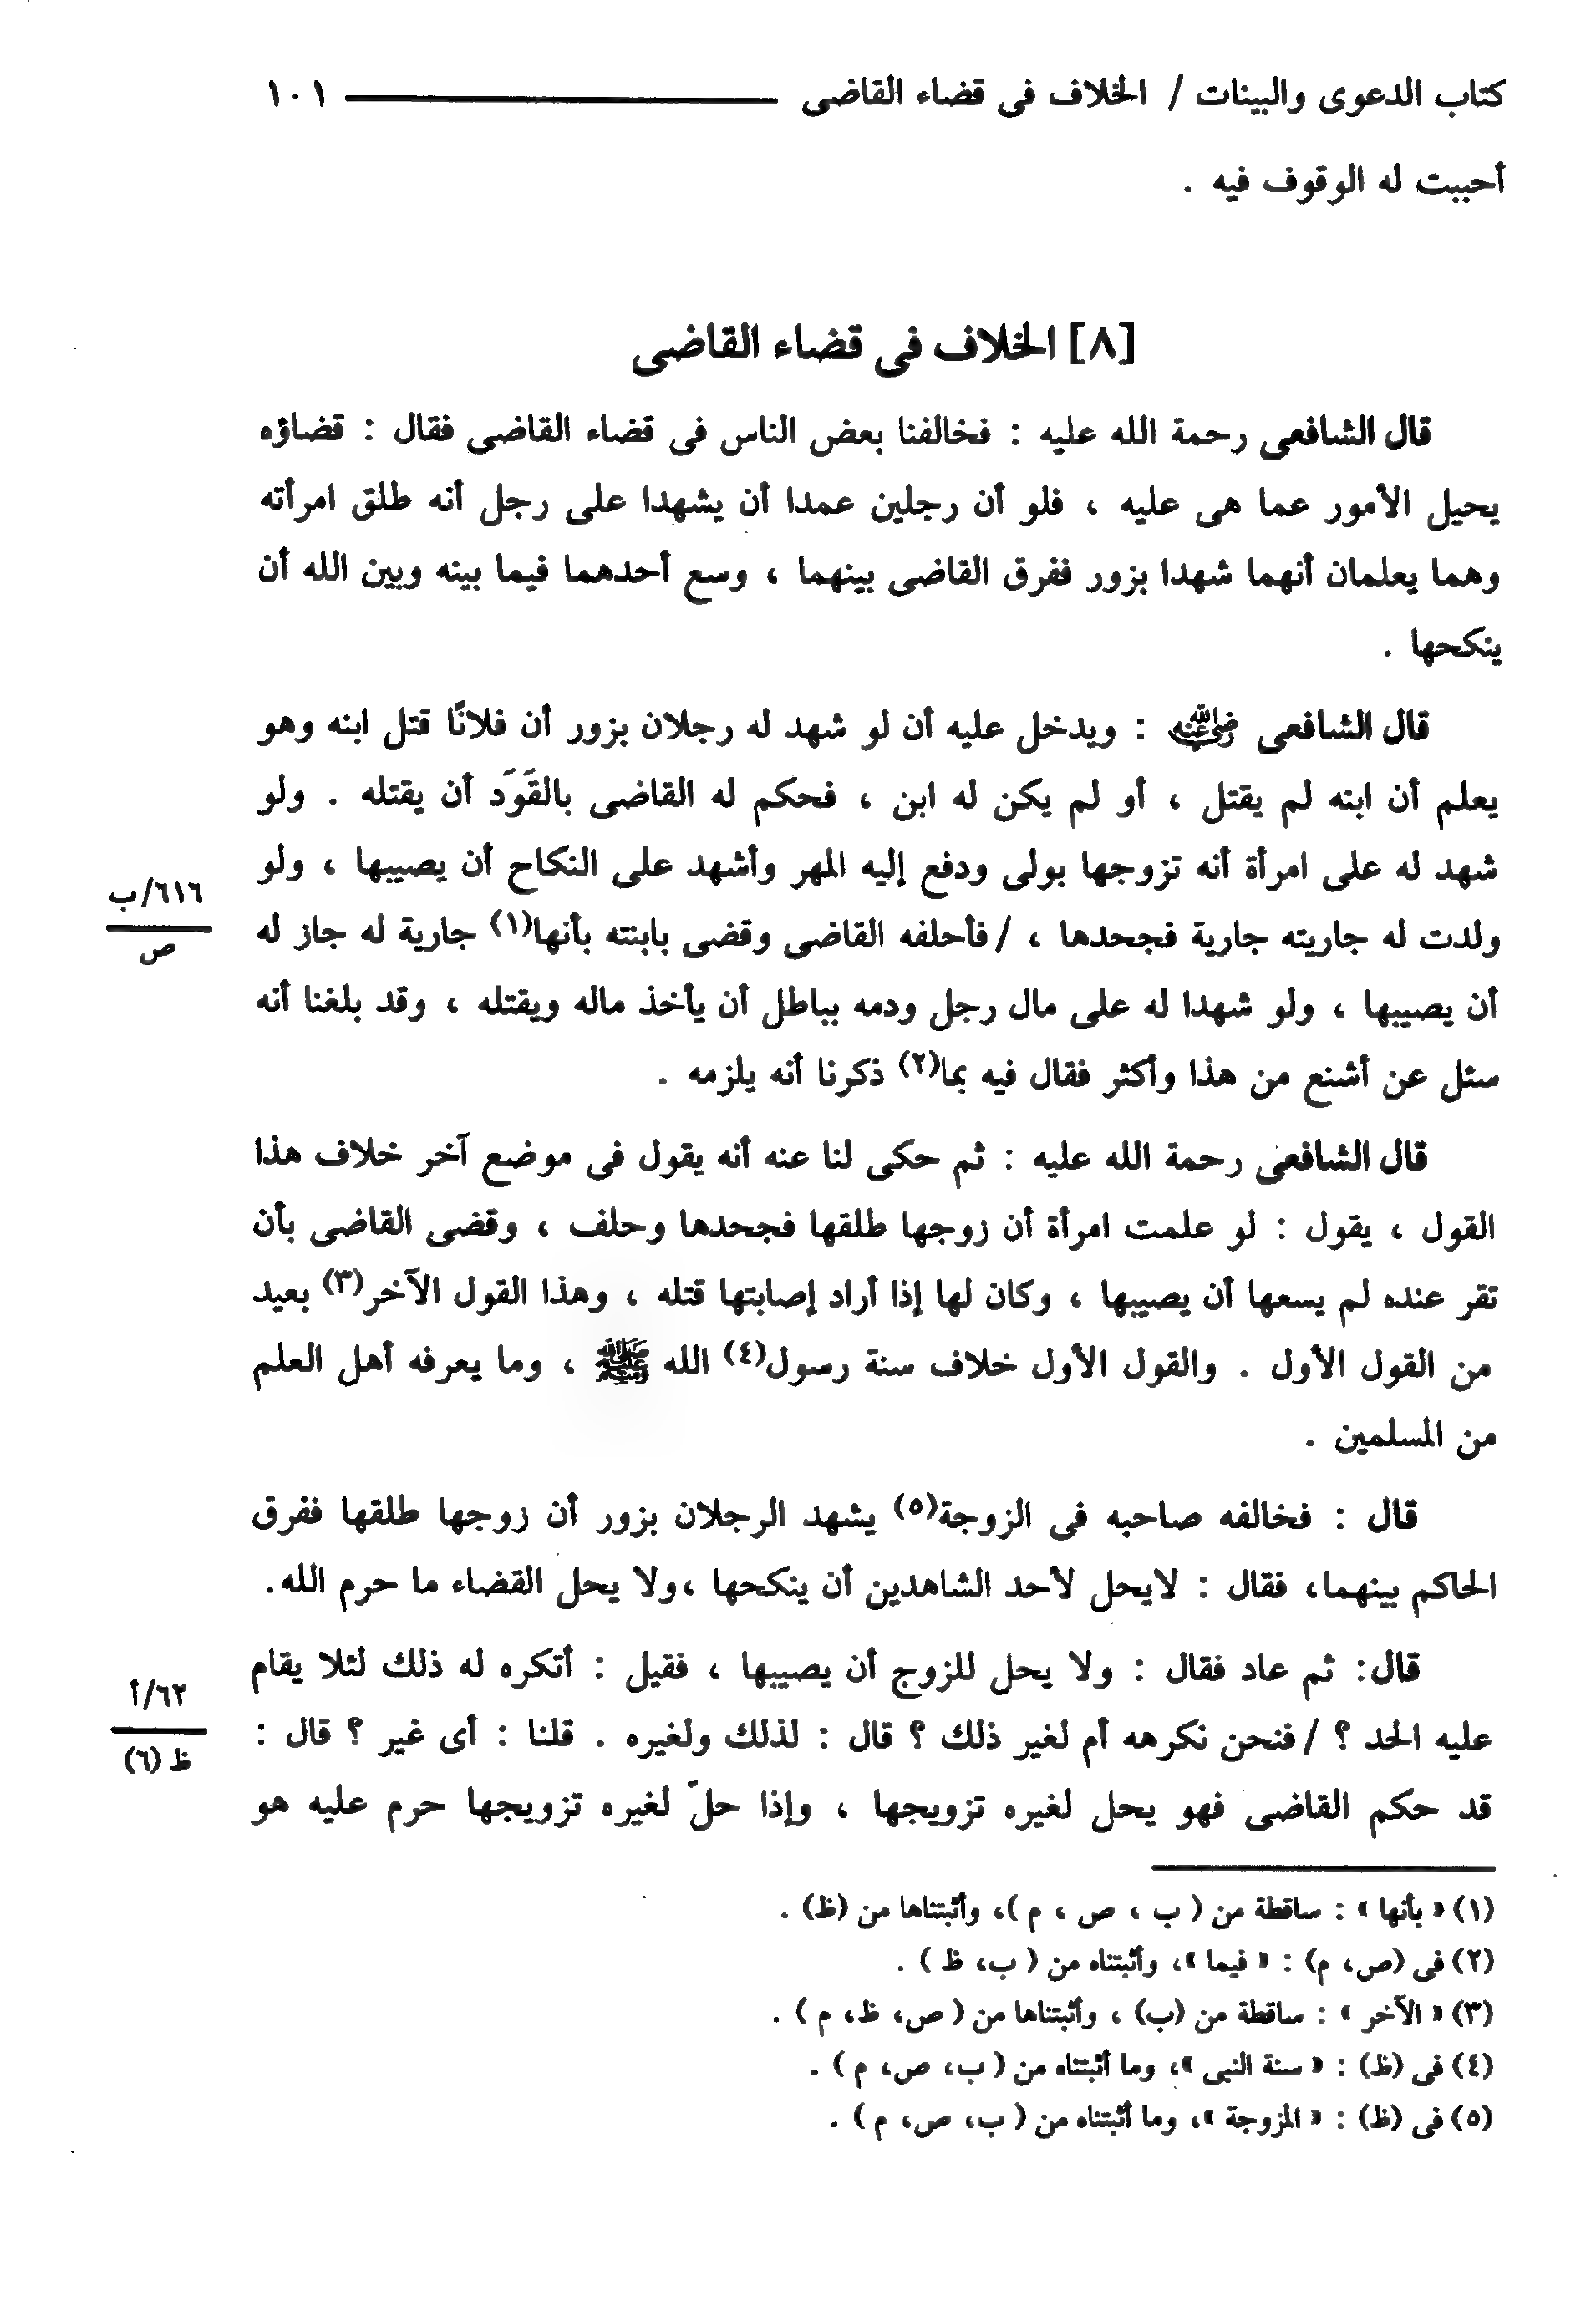 كتاب الدعوى والبينات / الخلاف فى قضاء القاضى ١٠١
أحببت له الوقوف فيه .
[٨] الخلاف فى قضاء القاضى
قال الشافعى رحمة الله عليه : فخالفنا بعض الناس فى قضاء القاضى فقال : قضاؤه
يحيل الأمور عما هى عليه ، فلو أن رجلين عمدا أن يشهدا على رجل أنه طلق امرأته
وهما يعلمان أنهما شهدا بزور ففرق القاضى بينهما ، وسع أحدهما فيما بينه وبين الله أن
ينكحها .
قال الشافعى رضي الله عنه : ويدخل عليه أن لو شهد له رجلان بزور أن فلانًا قتل ابنه وهو
يعلم أن ابنه لم يقتل ، أو لم يكن له ابن ، فحكم له القاضى بالقَوَد أن يقتله . ولو
شهد له على امرأة أنه تزوجها بولى ودفع إليه المهر وأشهد على النكاح أن يصيبها ، ولو
ولدت له جاريته جارية فجحدها ، /فأحلفه القاضى وقضى بابنته بأنها(١) جارية له جاز له
٦١٦/ب
ص
أن يصيبها ، ولو شهدا له على مال رجل ودمه بباطل أن يأخذ ماله ويقتله ، وقد بلغنا أنه
سئل عن أشنع من هذا وأكثر فقال فيه بما(٢) ذكرنا أنه يلزمه .
قال الشافعى رحمة الله عليه : ثم حكى لنا عنه أنه يقول فى موضع آخر خلاف هذا
القول ، يقول : لو علمت امرأة أن زوجها طلقها فجحدها وحلف ، وقضى القاضى بأن
تقر عنده لم يسعها أن يصيبها ، وكان لها إذا أراد إصابتها قتله ، وهذا القول الآخر(٣) بعيد
من القول الأول . والقول الأول خلاف سنة رسول(٤) الله ﷺ ، وما يعرفه أهل العلم
من المسلمين .
قال : فخالفه صاحبه فى الزوجة(٥) يشهد الرجلان بزور أن زوجها طلقها ففرق
الحاكم بينهما، فقال : لايحل لأحد الشاهدين أن ينكحها ،ولا يحل القضاء ما حرم الله.
قال: ثم عاد فقال : ولا يحل للزوج أن يصيبها ، فقيل : أتكره له ذلك لئلا يقام
عليه الحد ؟ /فنحن نكرهه أم لغير ذلك ؟ قال : لذلك ولغيره . قلنا : أى غير ؟ قال :
٦٢/أ
ظ (٦)
قد حكم القاضى فهو يحل لغيره تزويجها ، وإذا حلّ لغيره تزويجها حرم عليه هو
(١) « بأنها » : ساقطة من ( ب ، ص ، م )، وأثبتناها من (ظ) .
(٢) فى (ص، م) : « فيما »، وأثبتناه من ( ب، ظ ) .
(٣) « الآخر » : ساقطة من (ب) ، وأثبتناها من ( ص، ظ، م ) .
(٤) فى (ظ) : « سنة النبى »، وما أثبتناه من ( ب، ص، م ) .
(٥) فى (ظ) : « المزوجة »، وما أثبتناه من ( ب، ص، م ) .